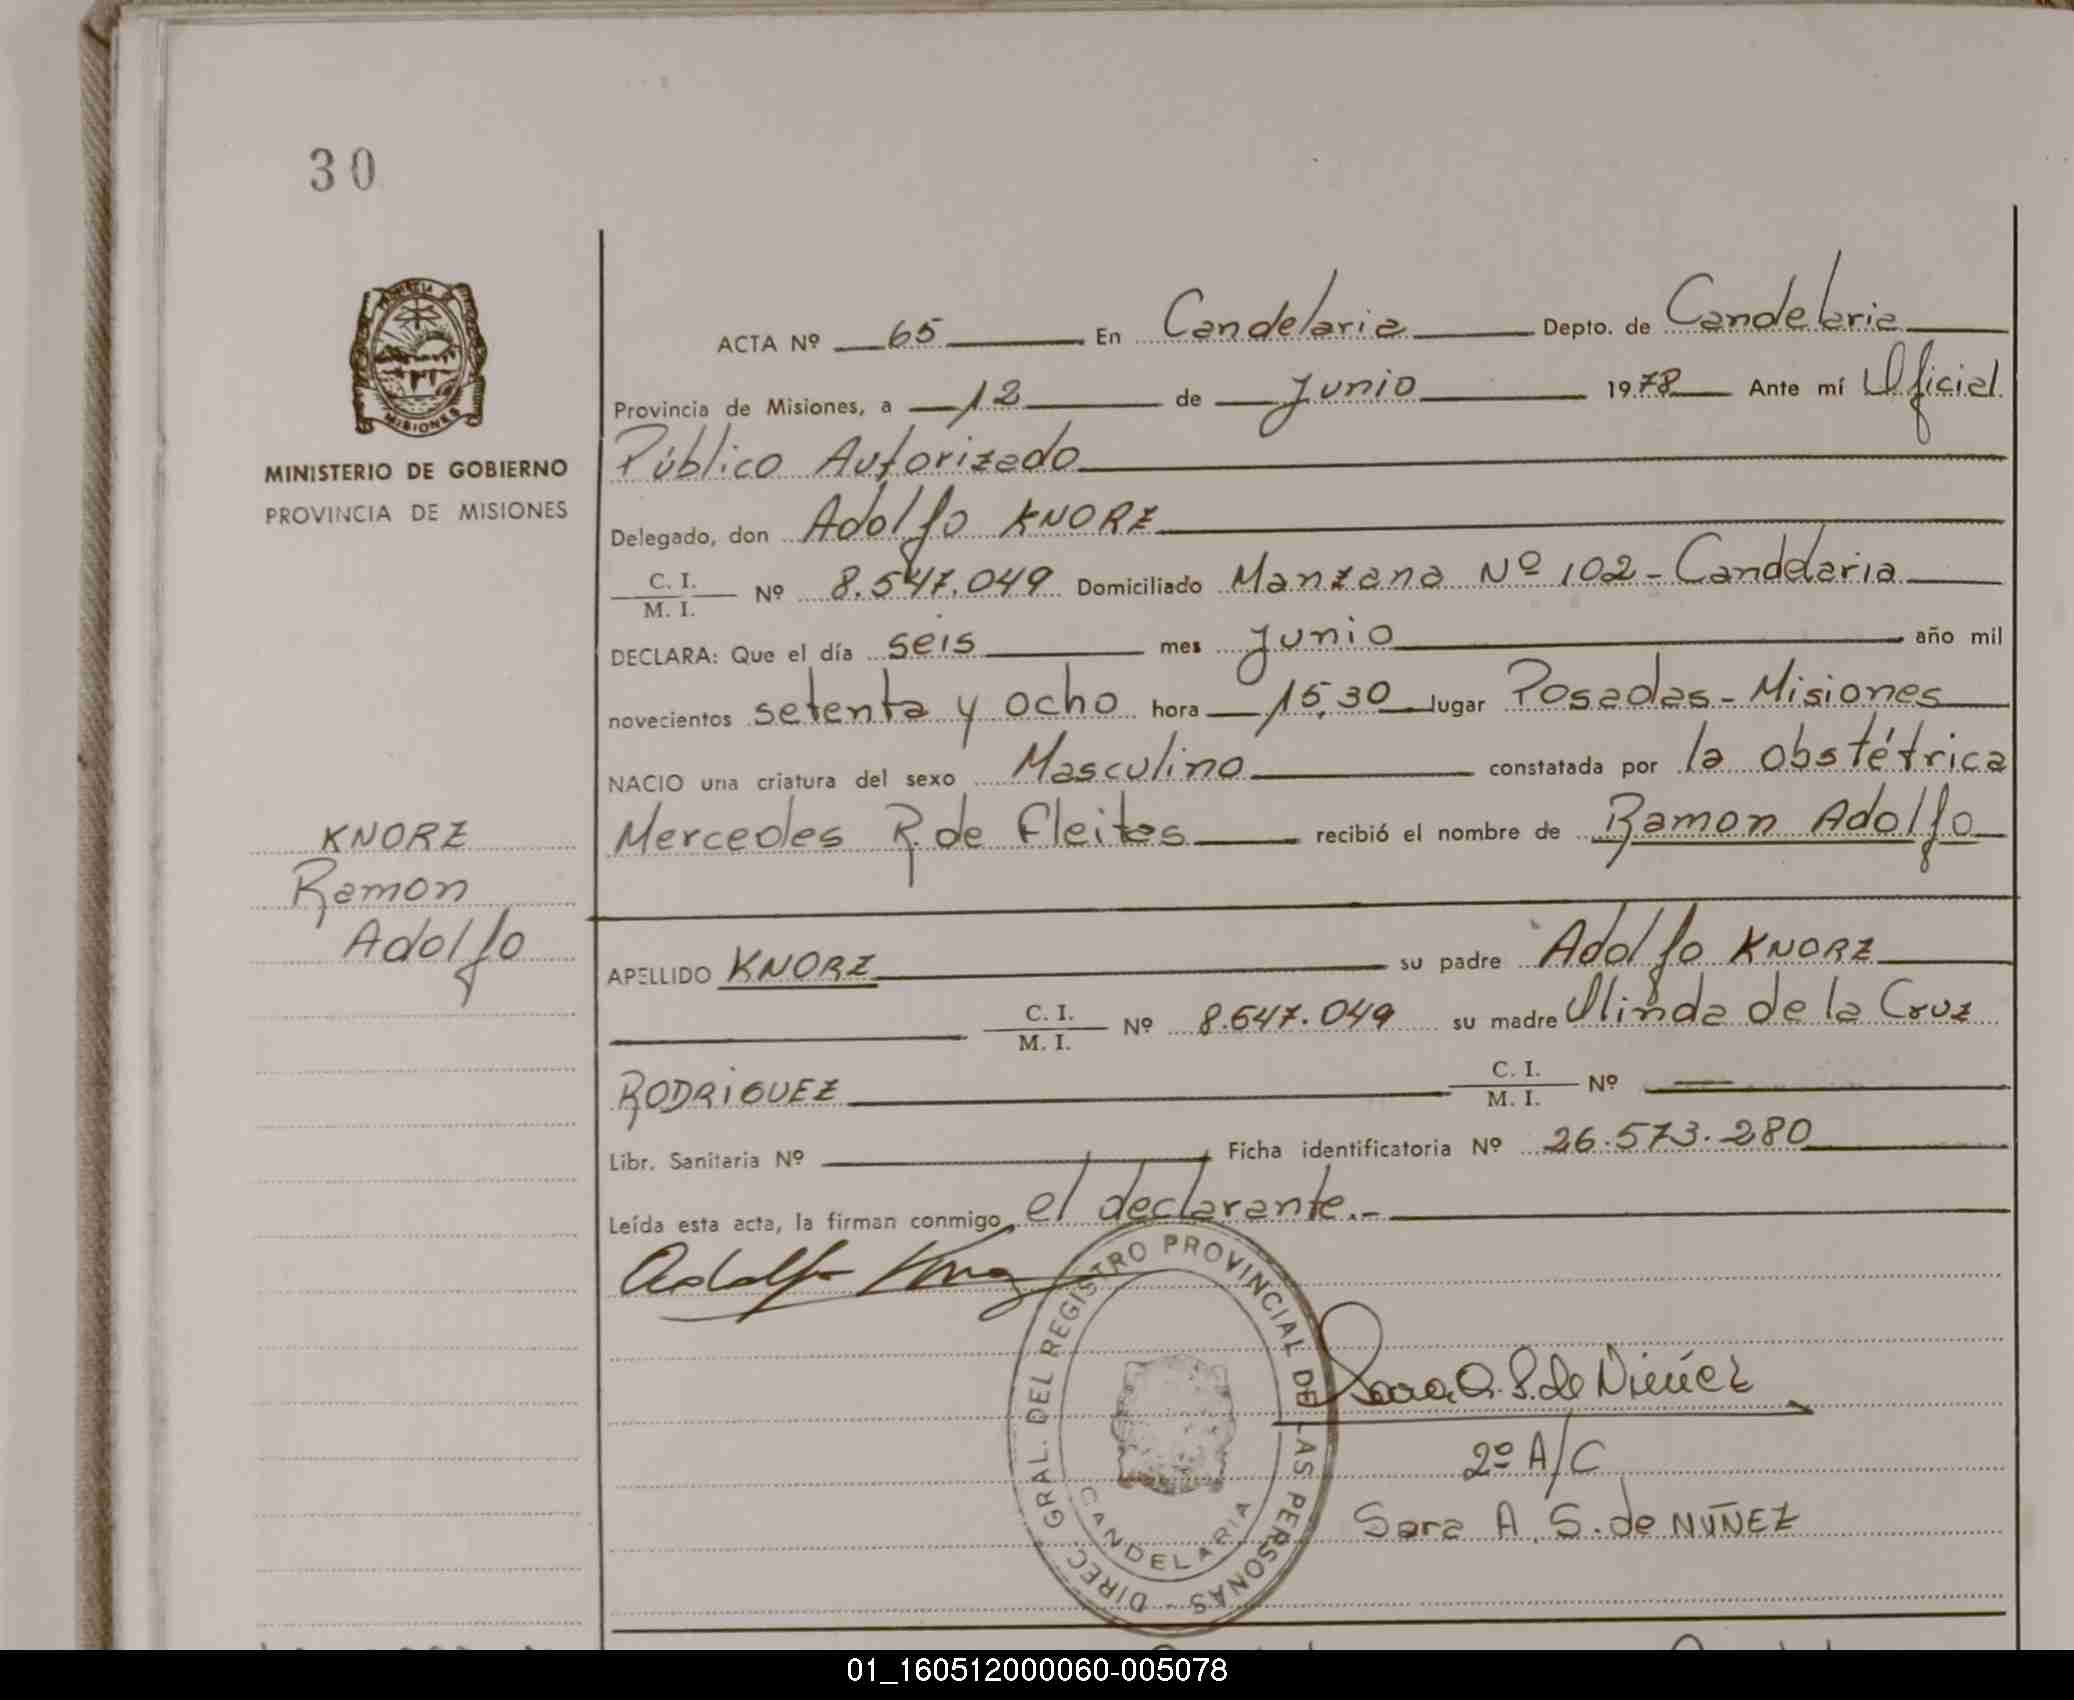 30
MINISTERIO DE GOBIERNO
PROVINCIA DE MISIONES
ACTA Nº 65 En Candelaria Depto. de Candelaria
Provincia de Misiones, a 12 de Junio 1978 Ante mí Oficial
Público Autorizado
Delegado, don Adolfo KNORZ
C. I. / M. I. Nº 8.547.049 Domiciliado Manzana Nº 102 - Candelaria
DECLARA: Que el día seis mes Junio año mil
novecientos setenta y ocho hora 15,30 lugar Posadas - Misiones
NACIO una criatura del sexo Masculino constatada por la obstétrica
Mercedes R. de Fleitas recibió el nombre de Ramon Adolfo
KNORZ
Ramon
Adolfo
APELLIDO KNORZ su padre Adolfo KNORZ
C. I. / M. I. Nº 8.547.049 su madre Olinda de la Cruz
RODRIGUEZ C. I. / M. I. Nº
Libr. Sanitaria Nº Ficha identificatoria Nº 26.573.280
Leída esta acta, la firman conmigo, el declarante.-
Adolfo Knorz
DIREC. GRAL. DEL REGISTRO PROVINCIAL DE LAS PERSONAS -
CANDELARIA
Sara A. S. de Núñez
2º A/C
Sara A. S. de NUÑEZ
01_160512000060-005078